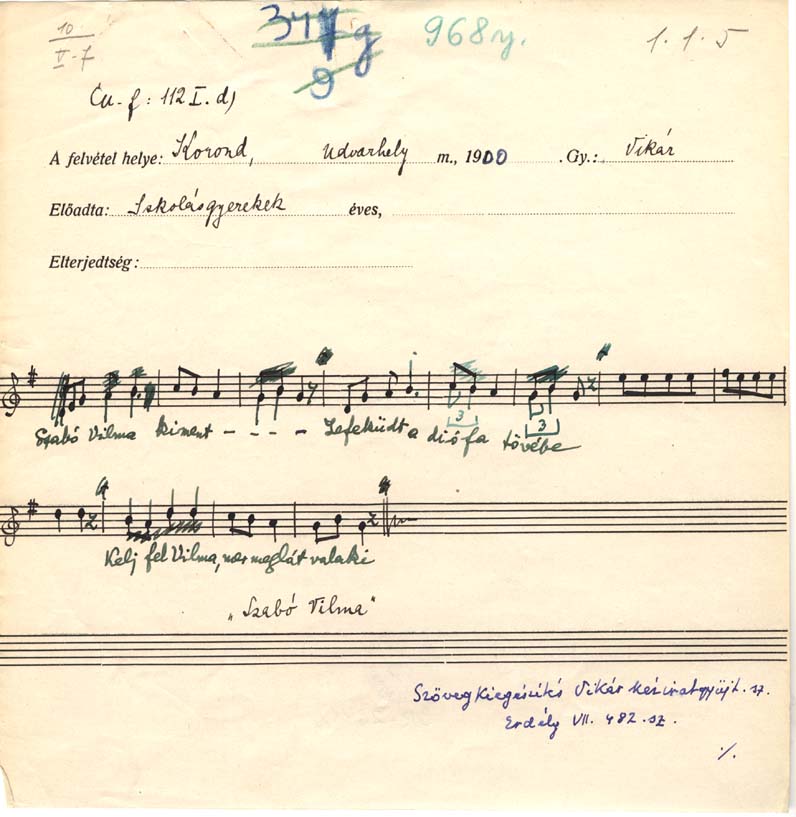 10
V-7
968y.
1. 1. 5
A felvétel helye: Korond, Udvarhely m., 1900 . Gy.: Vikár
Előadta: Iskolásgyerekek éves,
Elterjedtség:
Szabó Vilma kiment - - - - Lefeküdt a diófa tövébe
3 3
Kelj fel Vilma, mer meglát valaki
„Szabó Vilma"
Szövegkiegészítés Vikár kéziratgyüjt. sz.
Erdély VII. 482. sz.
./.